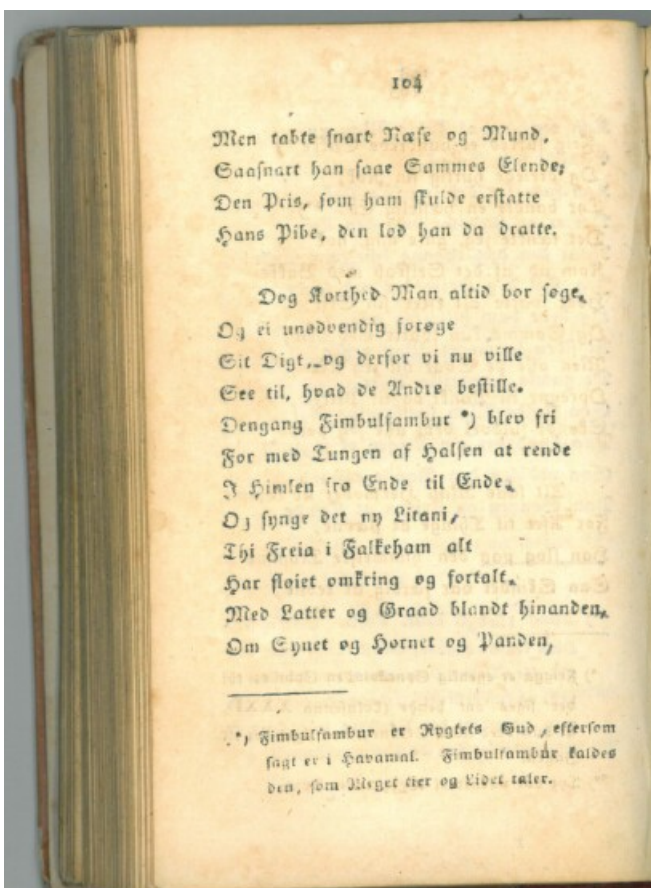 104
Men tabte snart Næse og Mund,
Saasnart han saae Sammes Elende;
Den Pris, som ham skulde erstatte
Hans Pibe, den lod han da dratte.
Dog Korthed Man altid bør søge,
Og ei unødvendig forøge
Sit Digt, og derfor vi nu ville
See til, hvad de Andre bestille.
Dengang Fimbulfambur *) blev fri
For med Tungen af Halsen at rende
I Himlen fra Ende til Ende,
Og synge det ny Litani,
Thi Freia i Falkeham alt
Har fløiet omkring og fortalt,
Med Latter og Graad blandt hinanden,
Om Synet og Hornet og Panden,
*) Fimbulfambur er Rygtets Gud, eftersom
sagt er i Havamal. Fimbulfambur kaldes
den, som Meget tier og Lidet taler.